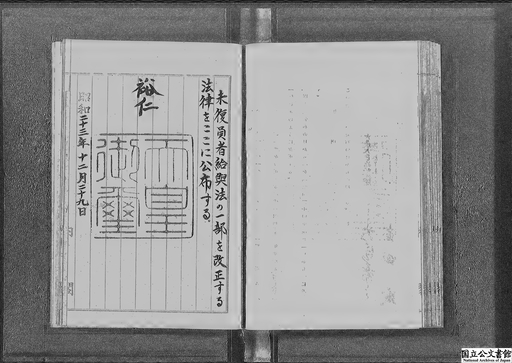 未復員者給與法の一部を改正する
法律をここに公布する。
裕仁
天皇
御璽
昭和二十三年十二月二十九日
国立公文書館
National Archives of Japan